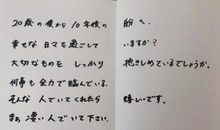 20歳の僕から10年後の 僕へ。
幸せな日々を過ごして いますか?
大切なものをしっかり 抱きしめているでしょうか。
何事も全力で臨んでいる、
そんな人でいてくれたら 嬉しいです。
まぁ凄い人でいて下さい。